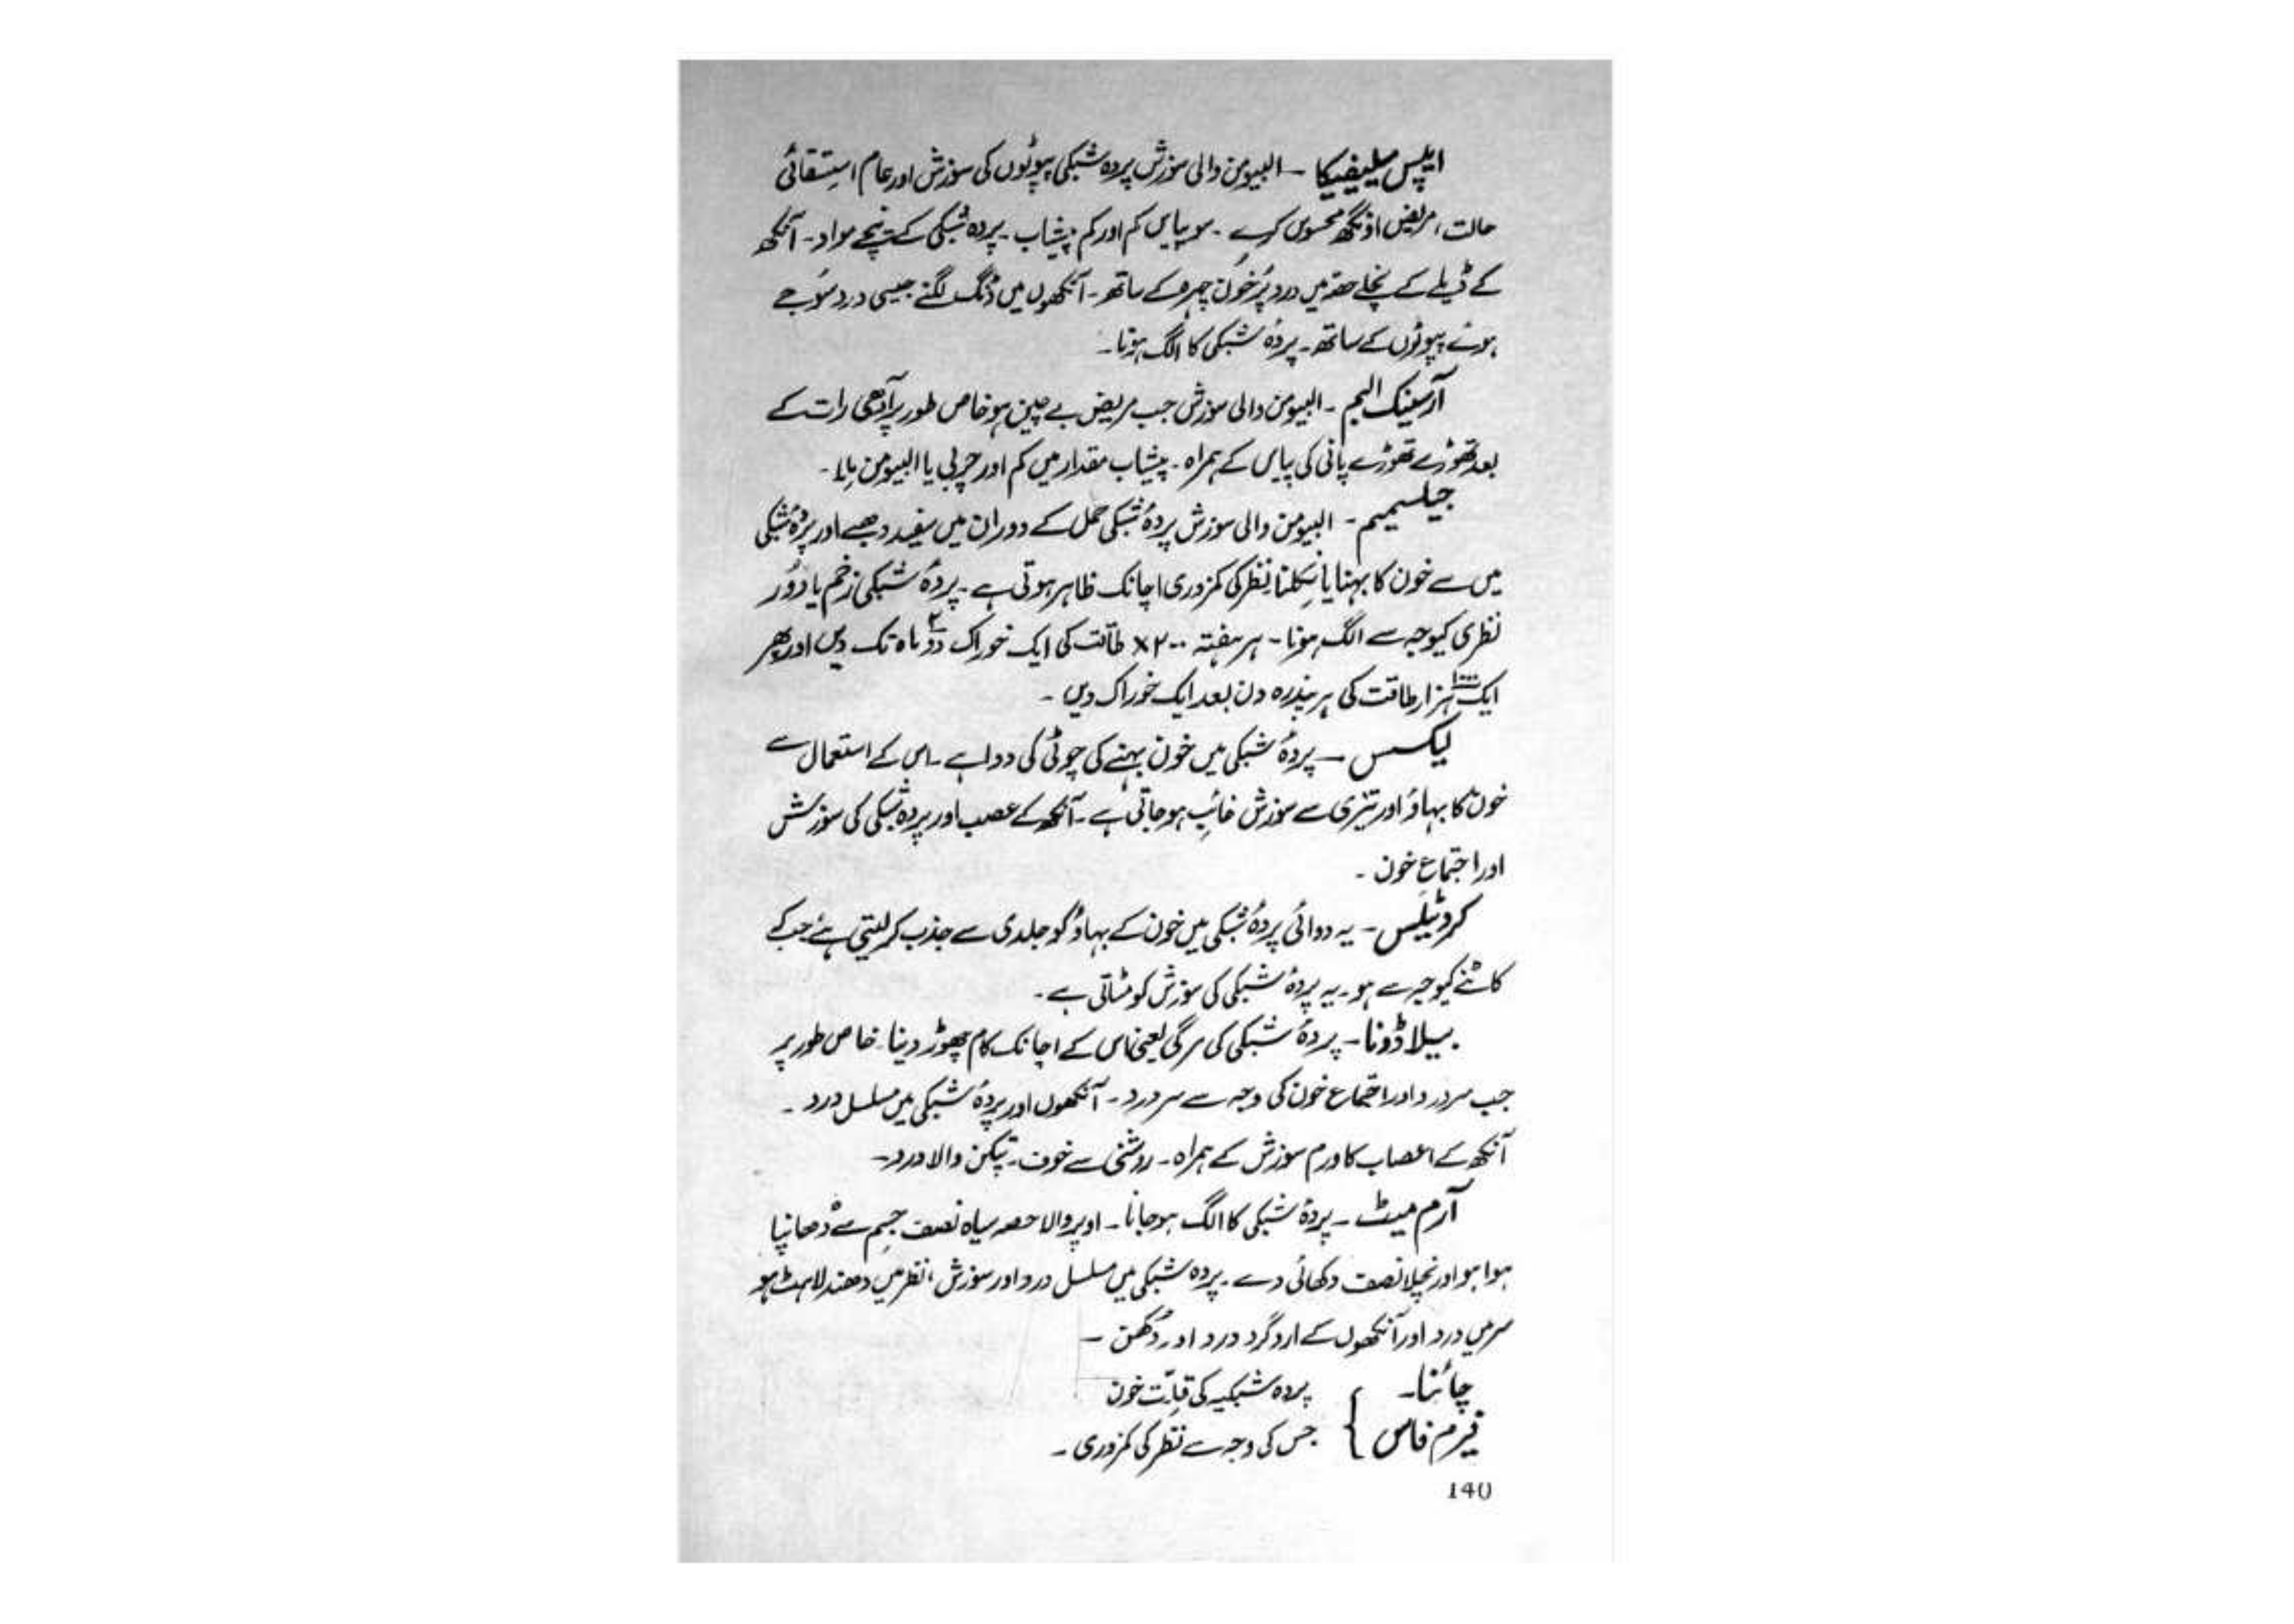 ایپس میلیفیکا - البیومن والی سوزش پردہ شبکی پپوٹوں کی سوزش اور عام استسقائی
حالت، مریض اونگھ محسوس کرے - پیاس کم اور کم پیشاب - پردہ شبکی کے نیچے مواد - آنکھ
کے ڈیلے کے نچلے حصہ میں درد پُرخون چہرہ کے ساتھ - آنکھوں میں ڈنگ لگنے جیسی درد سُوجے
ہوئے پپوٹوں کے ساتھ - پردۂ شبکی کا الگ ہونا -
آرسینک البم - البیومن والی سوزش جب مریض بے چین ہو خاص طور پر آدھی رات کے
بعد تھوڑے تھوڑے پانی کی پیاس کے ہمراہ - پیشاب مقدار میں کم اور چربی یا البیومن ملا -
جیلسیمیم - البیومن والی سوزش پردۂ شبکی حمل کے دوران میں سفید دھبے اور پردۂ شبکی
میں سے خون کا بہنا یا نکلنا نظر کی کمزوری اچانک ظاہر ہوتی ہے - پردۂ شبکی زخم یا دُور
نظری کیوجہ سے الگ ہونا - ہر ہفتہ ۲۰۰x طاقت کی ایک خوراک دو ۲ ماہ تک دیں اور پھر
ایک ہزار ۱۰۰۰ طاقت کی ہر پندرہ دن بعد ایک خوراک دیں -
لیکسس - پردۂ شبکی میں خون بہنے کی چوٹی کی دوا ہے - اس کے استعمال سے
خون کا بہاؤ اور تیزی سے سوزش غائب ہو جاتی ہے - آنکھ کے عصب اور پردۂ شبکی کی سوزش
اور اجتماع خون -
کروٹیلس - یہ دوائی پردۂ شبکی میں خون کے بہاؤ کو جلدی سے جذب کر لیتی ہے جب کے
کاٹنے کیوجہ سے ہو - یہ پردۂ شبکی کی سوزش کو مٹاتی ہے -
بیلا ڈونا - پردۂ شبکی کی مرگی یعنی اس کے اچانک کام چھوڑ دینا - خاص طور پر
جب سر درد اور اجتماع خون کی وجہ سے سر درد - آنکھوں اور پردۂ شبکی میں مسلسل درد -
آنکھ کے اعصاب کا ورم سوزش کے ہمراہ - روشنی سے خوف - تپکن والا درد -
آرم میٹ - پردۂ شبکی کا الگ ہو جانا - اوپر والا حصہ سیاہ نصف جسم سے ڈھانپا
ہوا ہو اور نچلا نصف دکھائی دے - پردہ شبکی میں مسلسل درد اور سوزش، نظر میں دھندلاہٹ ہو
سر میں درد اور آنکھوں کے اردگرد درد اور دُکھن -
چائنا - پردہ شبکیہ کی قلّت خون
فیرم فاس } جس کی وجہ سے نظر کی کمزوری -
140